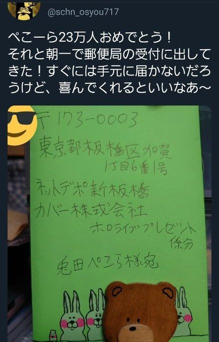 @schn_osyou717
ぺこーら23万人おめでとう！
それと朝一で郵便局の受付に出して
きた！すぐには手元に届かないだろ
うけど、喜んでくれるといいなあ〜
〒173-0003
東京都板橋区加賀
1丁目6番1号
ネットデポ新板橋
カバー株式会社
ホロライブプレゼント
係分
兎田ぺこら様宛